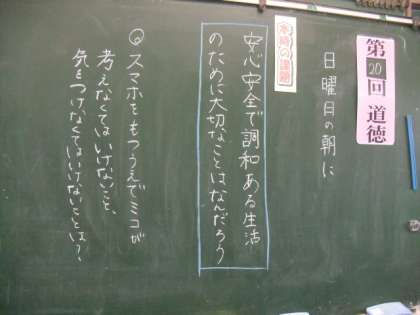 第20回 道徳
日曜日の朝に
本時の課題
安心安全で調和ある生活
のために大切なことはなんだろう
◎スマホをもつうえでミコが
考えなくてはいけないこと、
気をつけなくてはいけないことは?